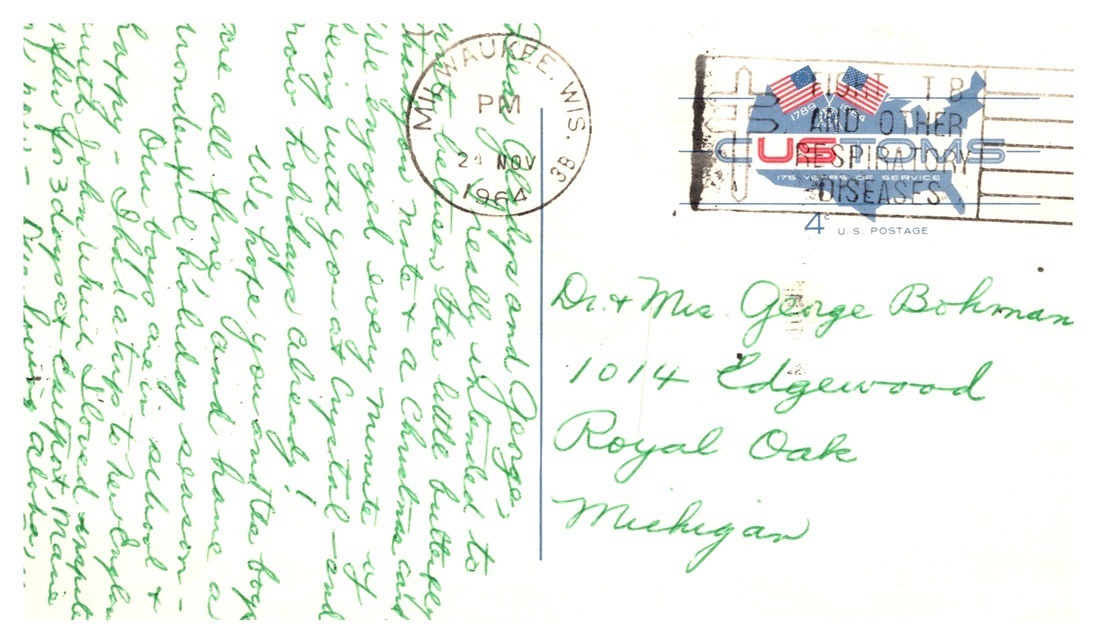 Dear Gladys and George,
I really intended to
write between the little butterfly
thankyou note & a Christmas card
We enjoyed every minute of
being with you at Crystal - and
now holidays ahead!
We hope you and the boys
are all fine, and have a
wonderful holiday season -
Our boys are in school &
happy - I had a trip to New Englan
with Jordan when I loved
& then for 3 days at Eastport, Maine
loving alohas,
MILWAUKEE, WIS.
PM
24 NOV
1964
3B
FIGHT TB
AND OTHER
RESPIRATORY
DISEASES
1789 1964
CUSTOMS
175 YEARS OF SERVICE
4c U.S. POSTAGE
Dr. & Mrs. George Bohman
1014 Edgewood
Royal Oak
Michigan